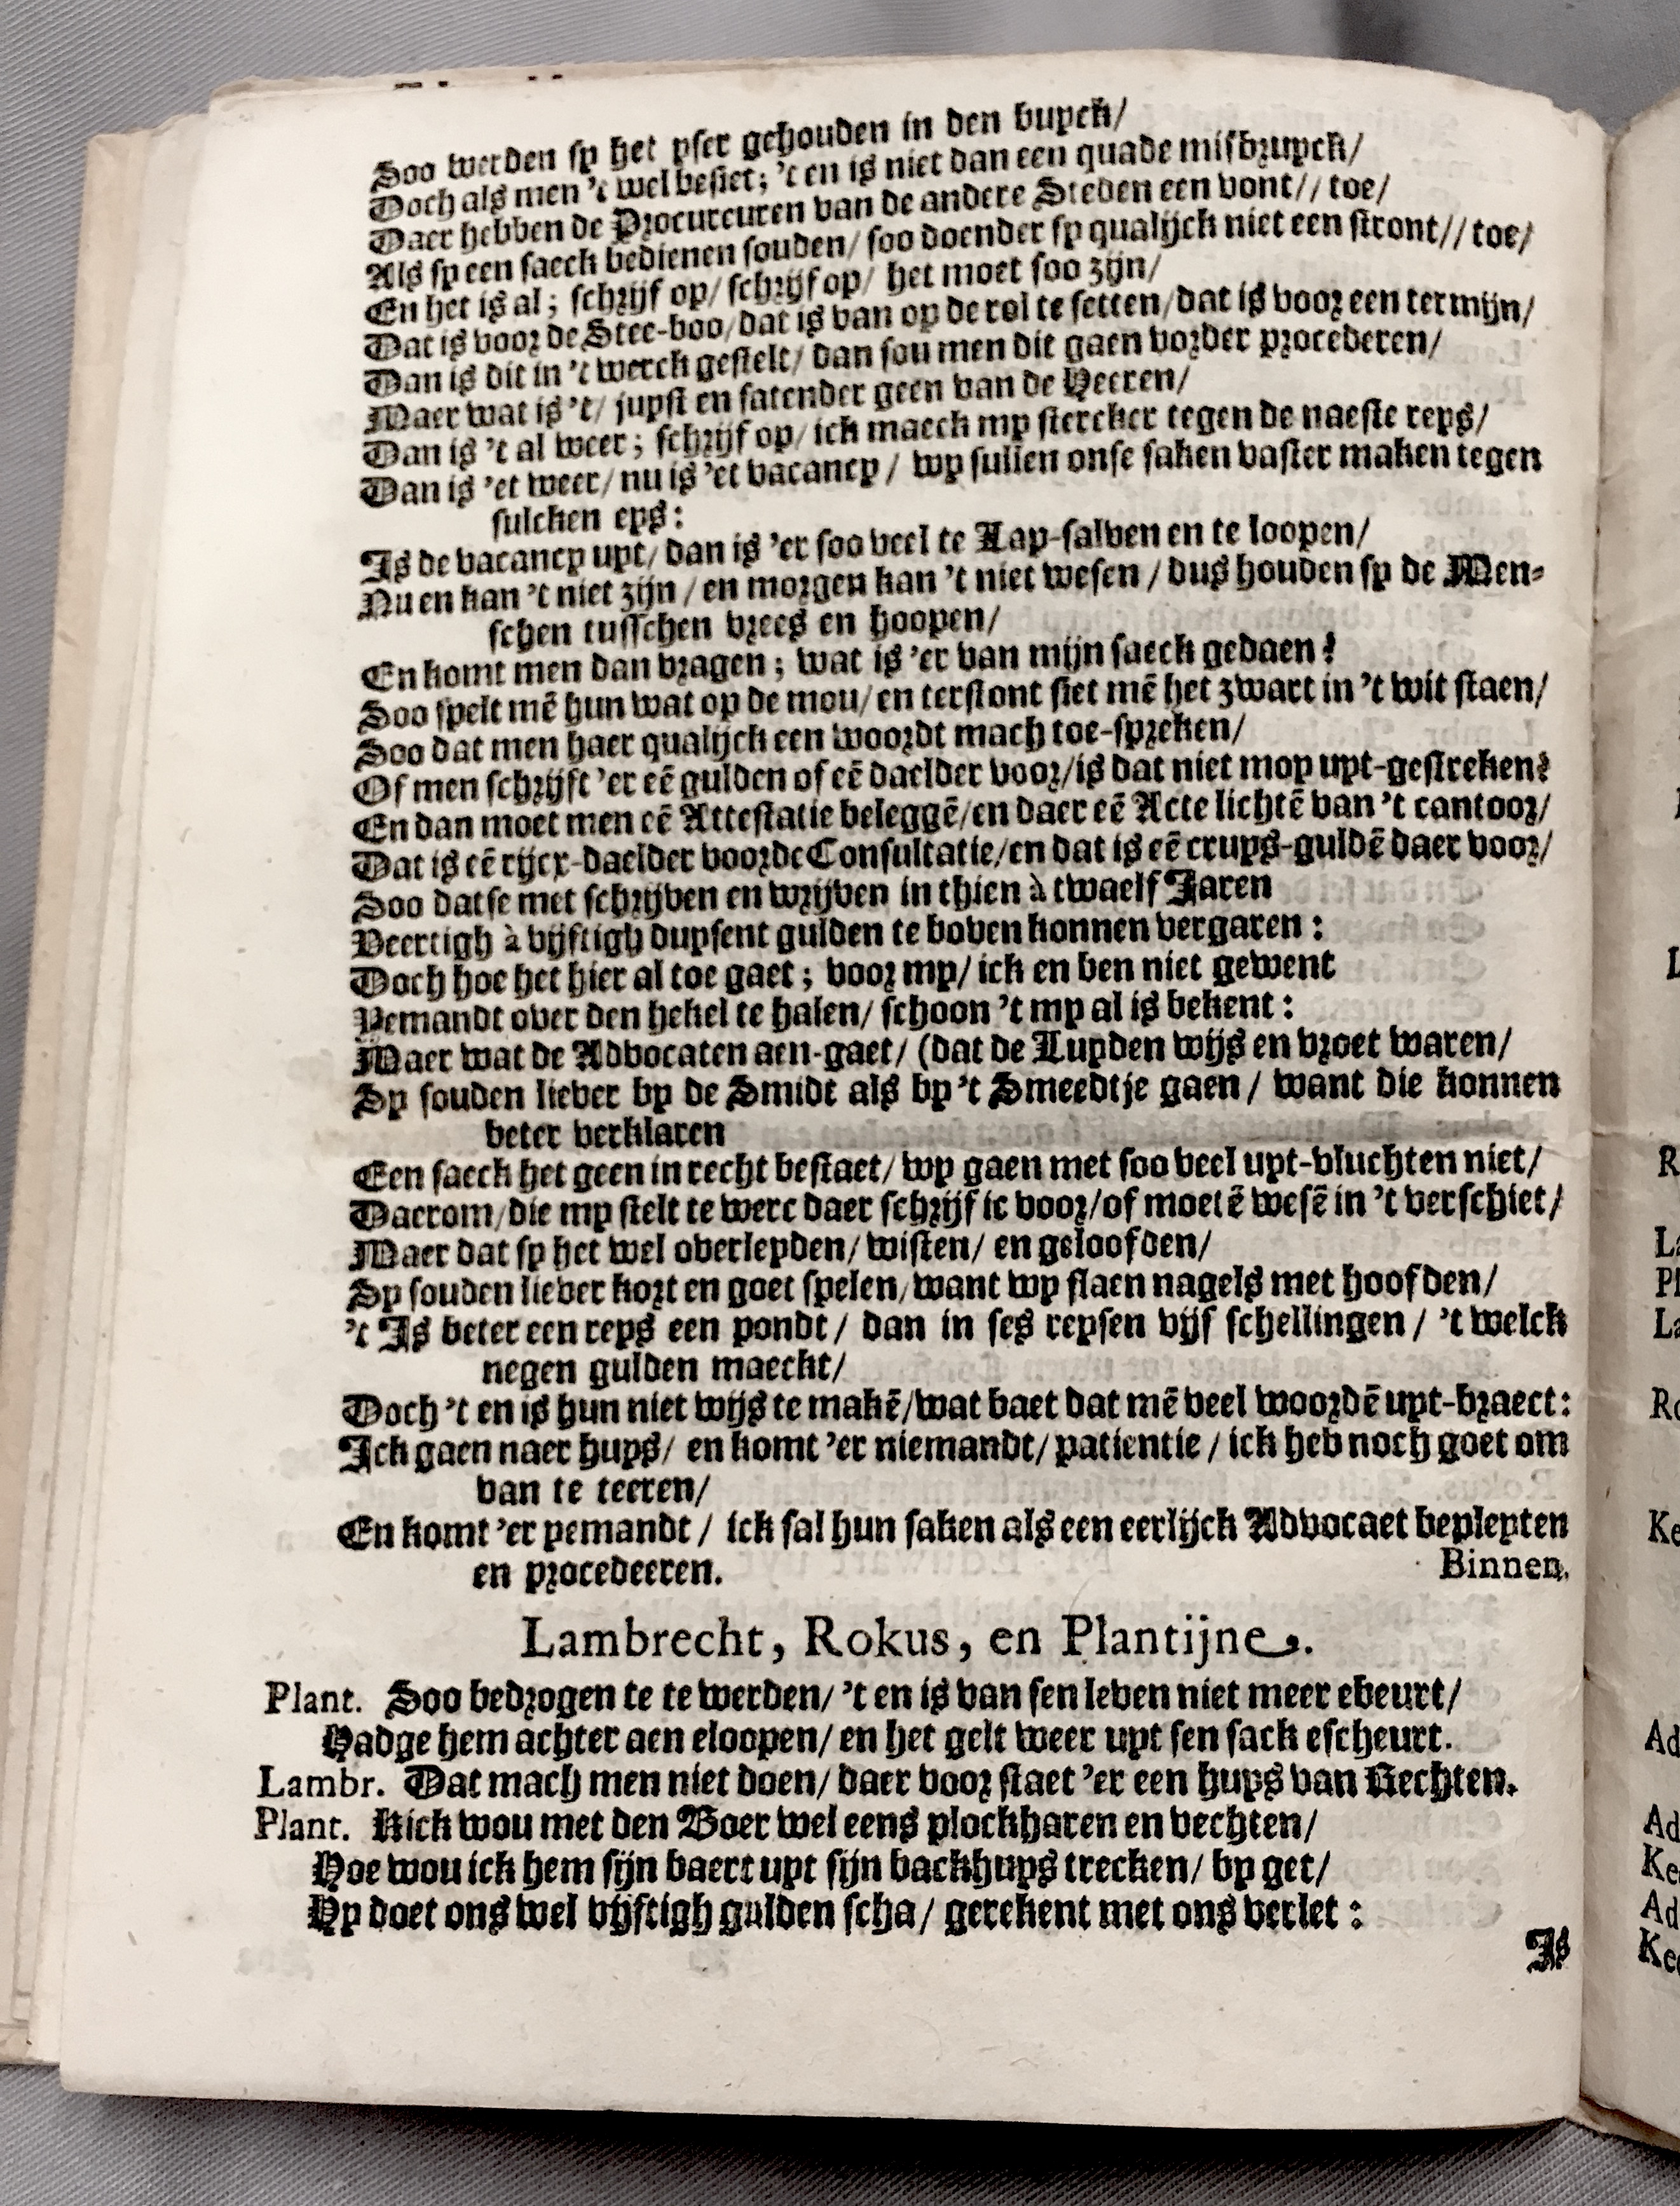 Soo werden sy het yser gehouden in den buyck/
Doch als men 't wel besiet; 't en is niet dan een quade misbruyck/
Daer hebben de Procureuren van de andere Steden een vont// toe/
Als sy een saeck bedienen souden/ soo doender sy qualijck niet een stront// toe/
En het is al; schrijf op/ schrijf op/ het moet soo zijn/
Dat is voor de Stee-boo/dat is van op de rol te setten/dat is voor een termijn/
Dan is dit in 't werck gestelt/ dan sou men dit gaen vorder procederen/
Maer wat is 't/ juyst en satender geen van de Heeren/
Dan is 't al weer; schrijf op/ ick maeck my stercker tegen de naeste reys/
Dan is 'et weer/ nu is 'et vacancy/ wy sullen onse saken vaster maken tegen
sulcken eys:
Is de vacancy uyt/ dan is 'er soo veel te Lap-salven en te loopen/
Nu en kan 't niet zijn/ en morgen kan 't niet wesen/ dus houden sy de Men-
schen tusschen vrees en hoopen/
En komt men dan vragen; wat is 'er van mijn saeck gedaen?
Soo spelt mē hun wat op de mou/ en terstont siet mē het zwart in 't wit staen/
Soo dat men haer qualijck een woordt mach toe-spreken/
Of men schrijft 'er eē gulden of eē daelder voor/is dat niet moy uyt-gestreken?
En dan moet men eē Attestatie beleggē/en daer eē Acte lichtē van 't cantoor/
Dat is eē rijcx-daelder voor de Consultatie/en dat is eē cruys-guldē daer voor/
Soo datse met schrijven en wrijven in thien à twaelf Jaren
Veertigh à vijftigh duysent gulden te boven konnen vergaren:
Doch hoe het hier al toe gaet; voor my/ ick en ben niet gewent
Yemandt over den hekel te halen/ schoon 't my al is bekent:
Maer wat de Advocaten aen-gaet/ (dat de Luyden wijs en vroet waren/
Sy souden liever by de Smidt als by 't Smeedtje gaen/ want die konnen
beter verklaren
Een saeck het geen in recht bestaet/ wy gaen met soo veel uyt-vluchten niet/
Daerom/die my stelt te werc daer schrijf ic voor/of moetē wesē in 't verschiet/
Maer dat sy het wel overleyden/ wisten/ en geloofden/
Sy souden liever kort en goet spelen/want wy slaen nagels met hoofden/
't Is beter een reys een pondt/ dan in ses reysen vijf schellingen/ 't welck
negen gulden maeckt/
Doch 't en is hun niet wijs te makē/wat baet dat mē veel woordē uyt-braect:
Ick gaen naer huys/ en komt 'er niemandt/ patientie/ ick heb noch goet om
van te teeren/
En komt 'er yemandt/ ick sal hun saken als een eerlijck Advocaet bepleyten
en procedeeren. Binnen.
Lambrecht, Rokus, en Plantijne.
Plant. Soo bedrogen te te werden/ 't en is van sen leven niet meer ebeurt/
Hadge hem achter aen eloopen/ en het gelt weer uyt sen sack escheurt.
Lambr. Dat mach men niet doen/ daer voor staet 'er een huys van Rechten.
Plant. Kick wou met den Boer wel eens plockharen en vechten/
Hoe wou ick hem sijn baert uyt sijn backhuys trecken/ by get/
Hy doet ons wel vijftigh gulden scha/ gerekent met ons verlet:
Is